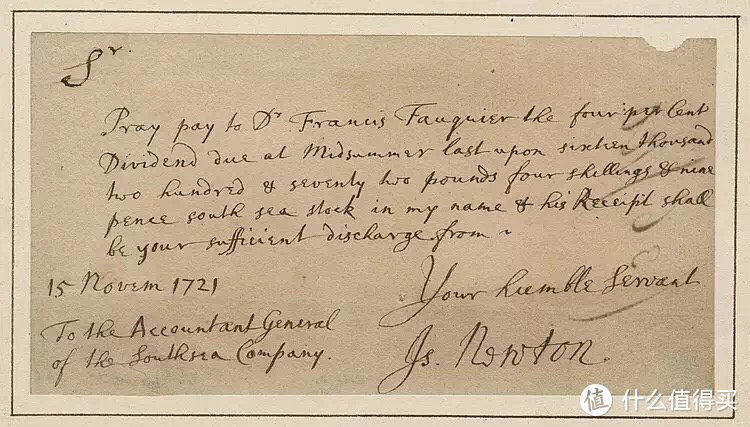 Sr.
Pray pay to Dr Francis Fauquier the four per Cent
Dividend due at Midsummer last upon sixteen thousand
two hundred & seventy two pounds four shillings & nine
pence south sea stock in my name & his Receipt shall
be your sufficient discharge from
15 Novem 1721
Your humble Servant
To the Accountant General
of the Southsea Company.
Is. Newton.
值 什么值得买